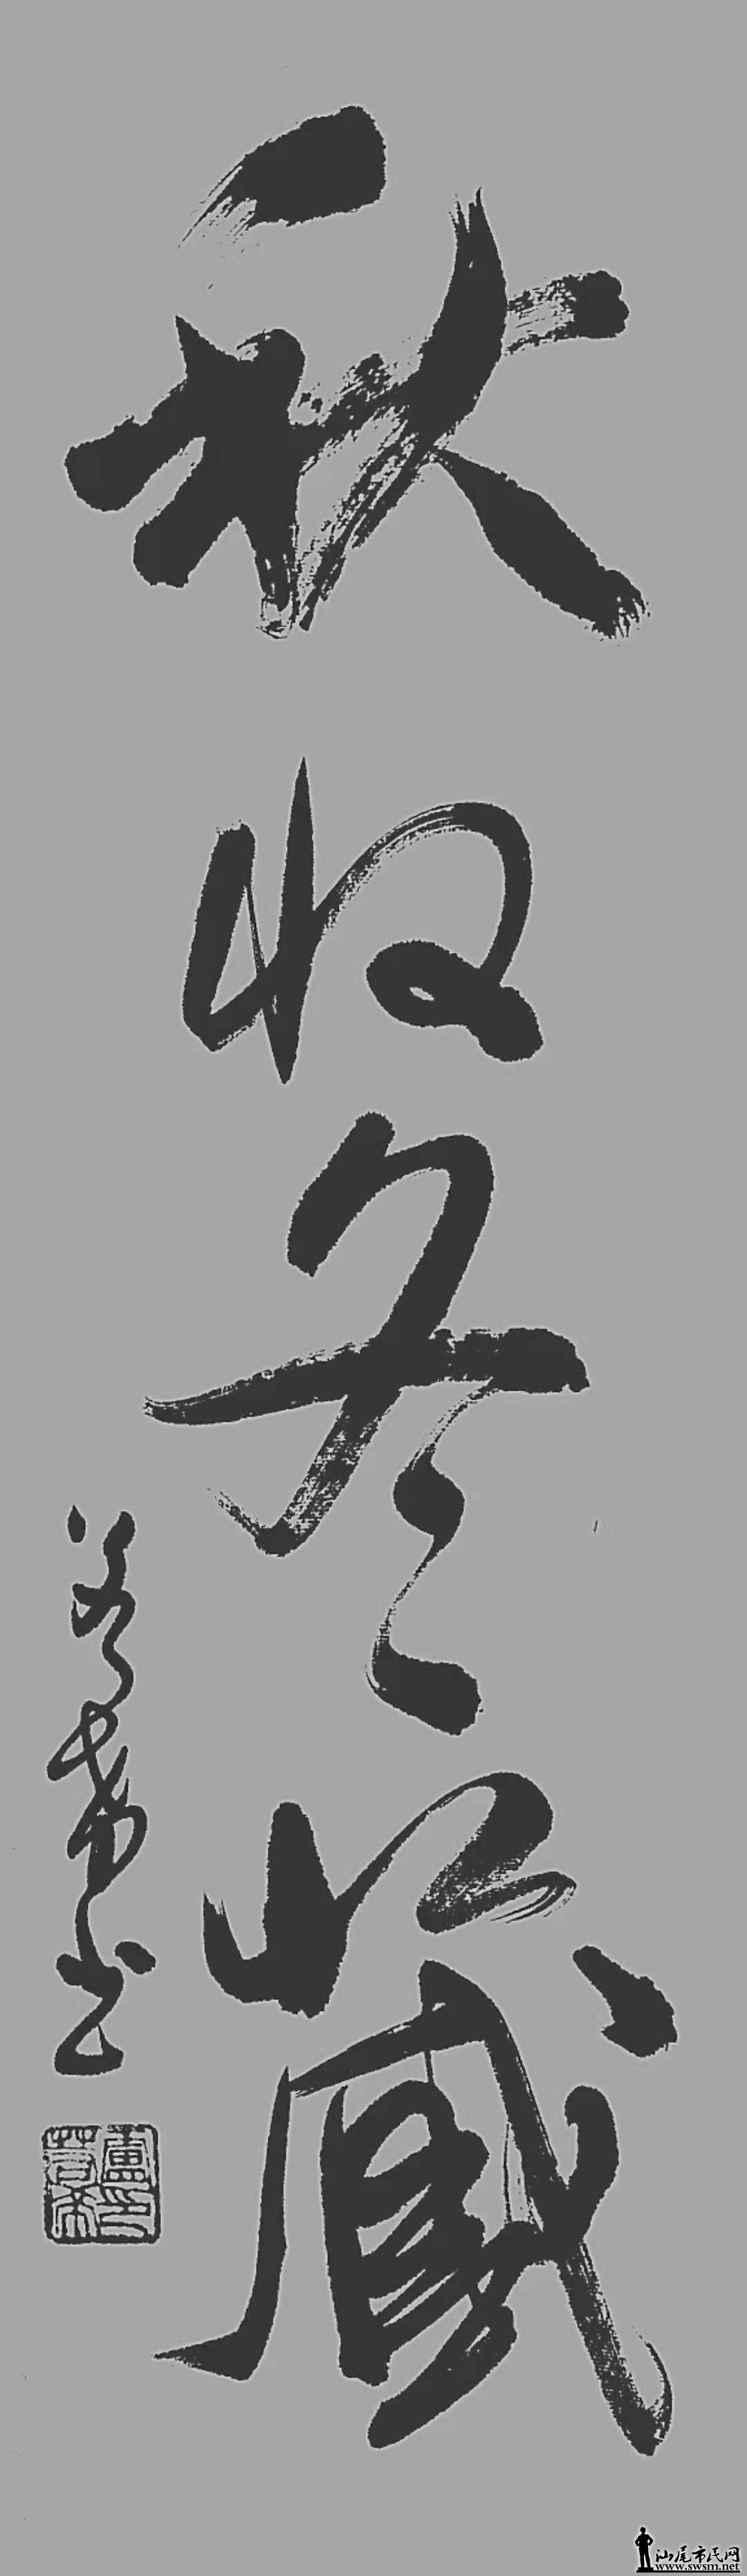 秋收冬藏
若希书
汕尾市民网
www.swsm.net